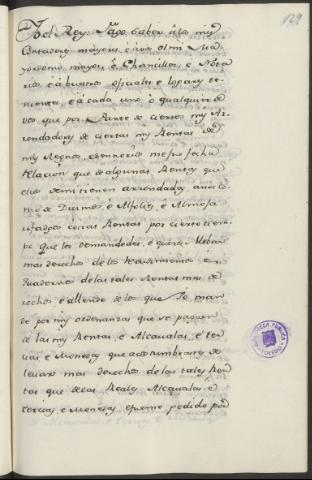 129
Yo el Rey. fago saber a los my
Contadores mayores e a vos el mi Ma
yordomo mayor, e Chanciller e Nota
rios e a vuestros oficiales e logares te
nientes, e a cada uno e qualquier de
vos que por Parte de ciertos my Ar
rendadores de ciertas my Rentas de
my Regnos, e Señorios me fue fecha
relacion que de algunas Rentas que
ellos de mi tienen arrendadas, asi co
mo de Diezmos e Alfolis e Almoxa
rifadgos e otras Rentas por cierto tiem
po que les demandades, e queredes llebar
mas derechos de los
Quaderno de las tales Rentas mas de
rechos e allende de los que Yo man
de por my ordenanzas que se paguen
de las my Rentas, e Alcavalas, e ter
cias e Monedas que acostumbrades de
levar mas derechos de las tales Ren
tas que de las Reales Alcavalas e
tercias, e Monedas, e fueme pedido por
BIBLIOTECA PUBLICA
TOLEDO